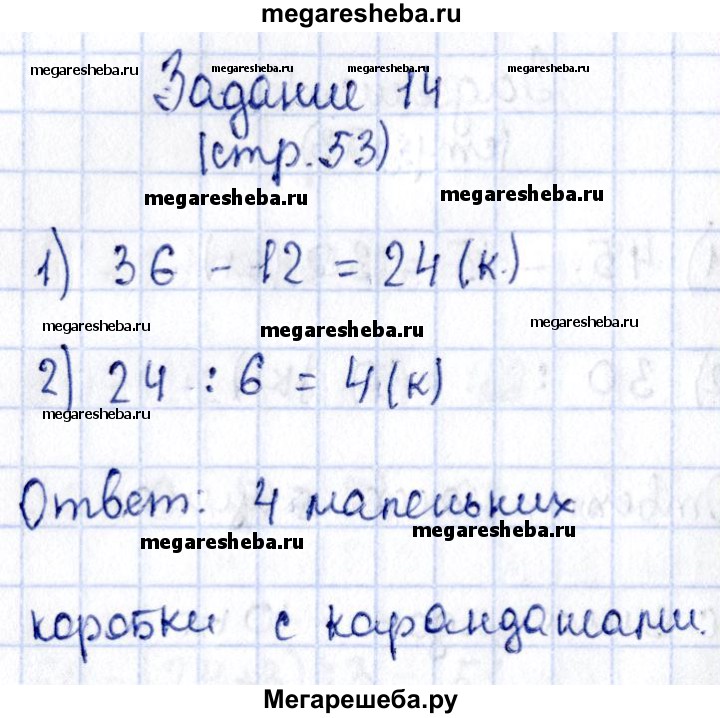 megaresheba.ru
megaresheba.ru megaresheba.ru megaresheba.ru megaresheba.ru
Задание 14
(стр. 53)
megaresheba.ru megaresheba.ru
1) 36 - 12 = 24 (к.)
megaresheba.ru megaresheba.ru megaresheba.ru
2) 24 : 6 = 4 (к)
megaresheba.ru
Ответ: 4 маленьких
megaresheba.ru megaresheba.ru
коробки с карандашами.
Мегарешеба.ру